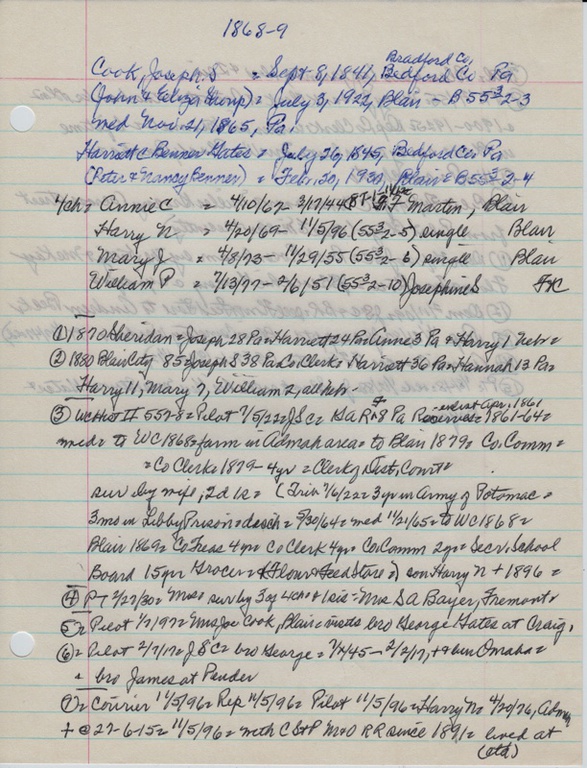 1868-9
Bradford Co,
Cook, Joseph S = Sept 8, 1841, Bedford Co Pa
(John & Eliza Thorp) = July 3, 1922, Blair - B 55³2-3
med Nov. 21, 1865, Pa.
Harriett C Benner Gates = July 26, 1845, Bedford Co. Pa
(Peter & Nancy Benner) = Febr. 20, 1930, Blair = B55³2-4
4/ch = Annie C = 4/10/67 - 3/17/44 Martin, Blair
Harry N = 4/20/69 - 11/5/96 (55³2-5) single Blair
Mary J = 4/8/73 - 11/29/55 (55³2-6) single Blair
William P = 7/13/77 - 2/6/51 (55³2-10) Josephine S
① 1870 Sheridan = Joseph 28 Pa = Harriett 24 Pa = Anne 3 Pa & Harry 1 Nebr =
② 1880 Blair City 85 = Joseph S 38 Pa Co Clerk = Harriett 36 Pa = Hannah 13 Pa =
Harry 11, Mary 7, William 2, all Nb =
③ WC Hist II 557-8 = Pilot 7/5/22 = J S C = G A R = 8 Pa Reserves = 1861-64 =
enlist Apr. 1861
med = to WC 1868 = farm in Admah area = to Blair 1879 = Co. Comm =
= Co Clerk = 1879 - 4 yr = Clerk of Dist. Court =
surv by wife, 2d 1s = (Trib 7/6/22 = 3 yr in Army of Potomac =
3 mo in Libby Prison = disch = 5/30/64 = med 11/21/65 = to WC 1868 =
Blair 1869 = Co Treas 4 yr = Co Clerk 4 yr = Co. Comm 2 yr = Secr. School
Board 15 yr Grocer = & Flour & Feed Store =) son Harry N + 1896 =
④ P-T 2/27/30 = Mrs = surv by 3 of 4 ch = & 1 sis = Mrs S A Bayer, Fremont =
⑤ = Pilot 1/7/92 = Mrs Joe Cook, Blair = meets bro George Gates at Craig,
⑥ = Pilot 2/7/17 = J S C = bro George = 7/4/45 - 2/2/17, + & bur Omaha =
= bro James at Pender
⑦ = Courier 11/5/96 = Rep 11/5/96 = Pilot 11/5/96 = Harry N = 4/20/76, Admah
+ @ 27-6-15 = 11/5/96 = with C St P M & O RR since 1891 = lived at
(otd)